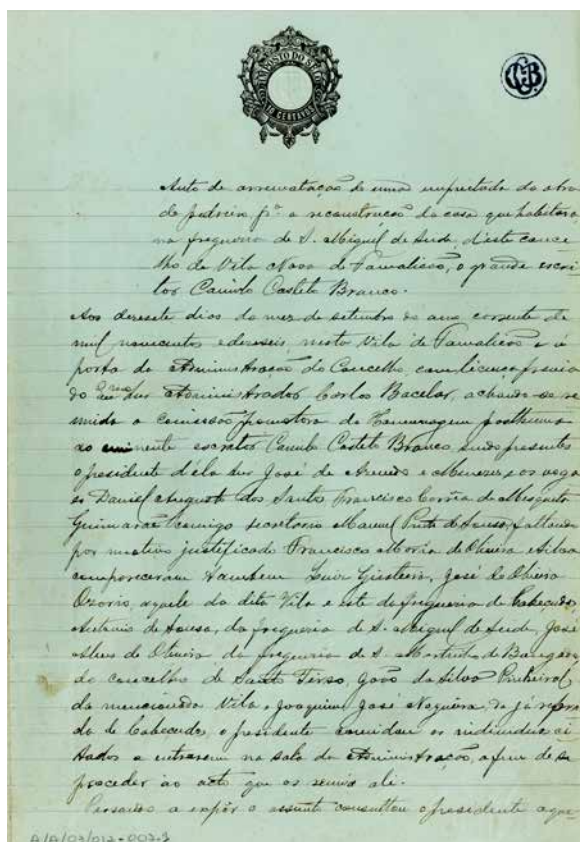 IMPOSTO DO SELO
10 CENTAVOS
CCB
Auto de arrematação de uma empreitada da obra
de pedreiro pª a reconstrução da casa que habitára,
na freguesia de S. Miguel de Seide, d'este conce-
lho de Vila Nova de Famalicão, o grande escri-
tor Camilo Castelo Branco.
Aos dezesete dias do mez de setembro do ano corrente de
mil novecentos e dezeseis, nesta Vila de Famalicão e á
porta da Administração do Concelho, com licença prévia
do Exmo Snr Administrador Carlos Bacelar, achando-se re-
unida a comissão promotora da Homenagem posthuma
ao eminente escritor Camilo Castelo Branco, sendo presentes
o presidente d'ela Snr José de Azevedo e Menezes e os voga-
es Daniel Augusto dos Santos, Francisco Corrêa de Mesquita
Guimarães comigo secretario Manuel Pinto de Sousa, faltando
por motivo justificado Francisco Maria de Oliveira e Silva
compareceram tambem Luiz José de Oliveira
Ozorio, aquele da dita Vila e este da freguesia de Cabeçudos,
Antonio de Sousa, da freguesia de S. Miguel de Seide, José
Alves de Oliveira da freguesia de S. Martinho de
do concelho de Santo Tirso, João da Silva Pinheiral
da mencionada Vila e Joaquim José Nogueira, da já referi-
da de Cabeçudos, o presidente convidou os individuos ci-
tados a entrarem na sala da Administração, afim de se
proceder ao acto que os reunia ali.
Passando a expôr o assunto consultou o presidente aque-
A/A/03/012-003-1